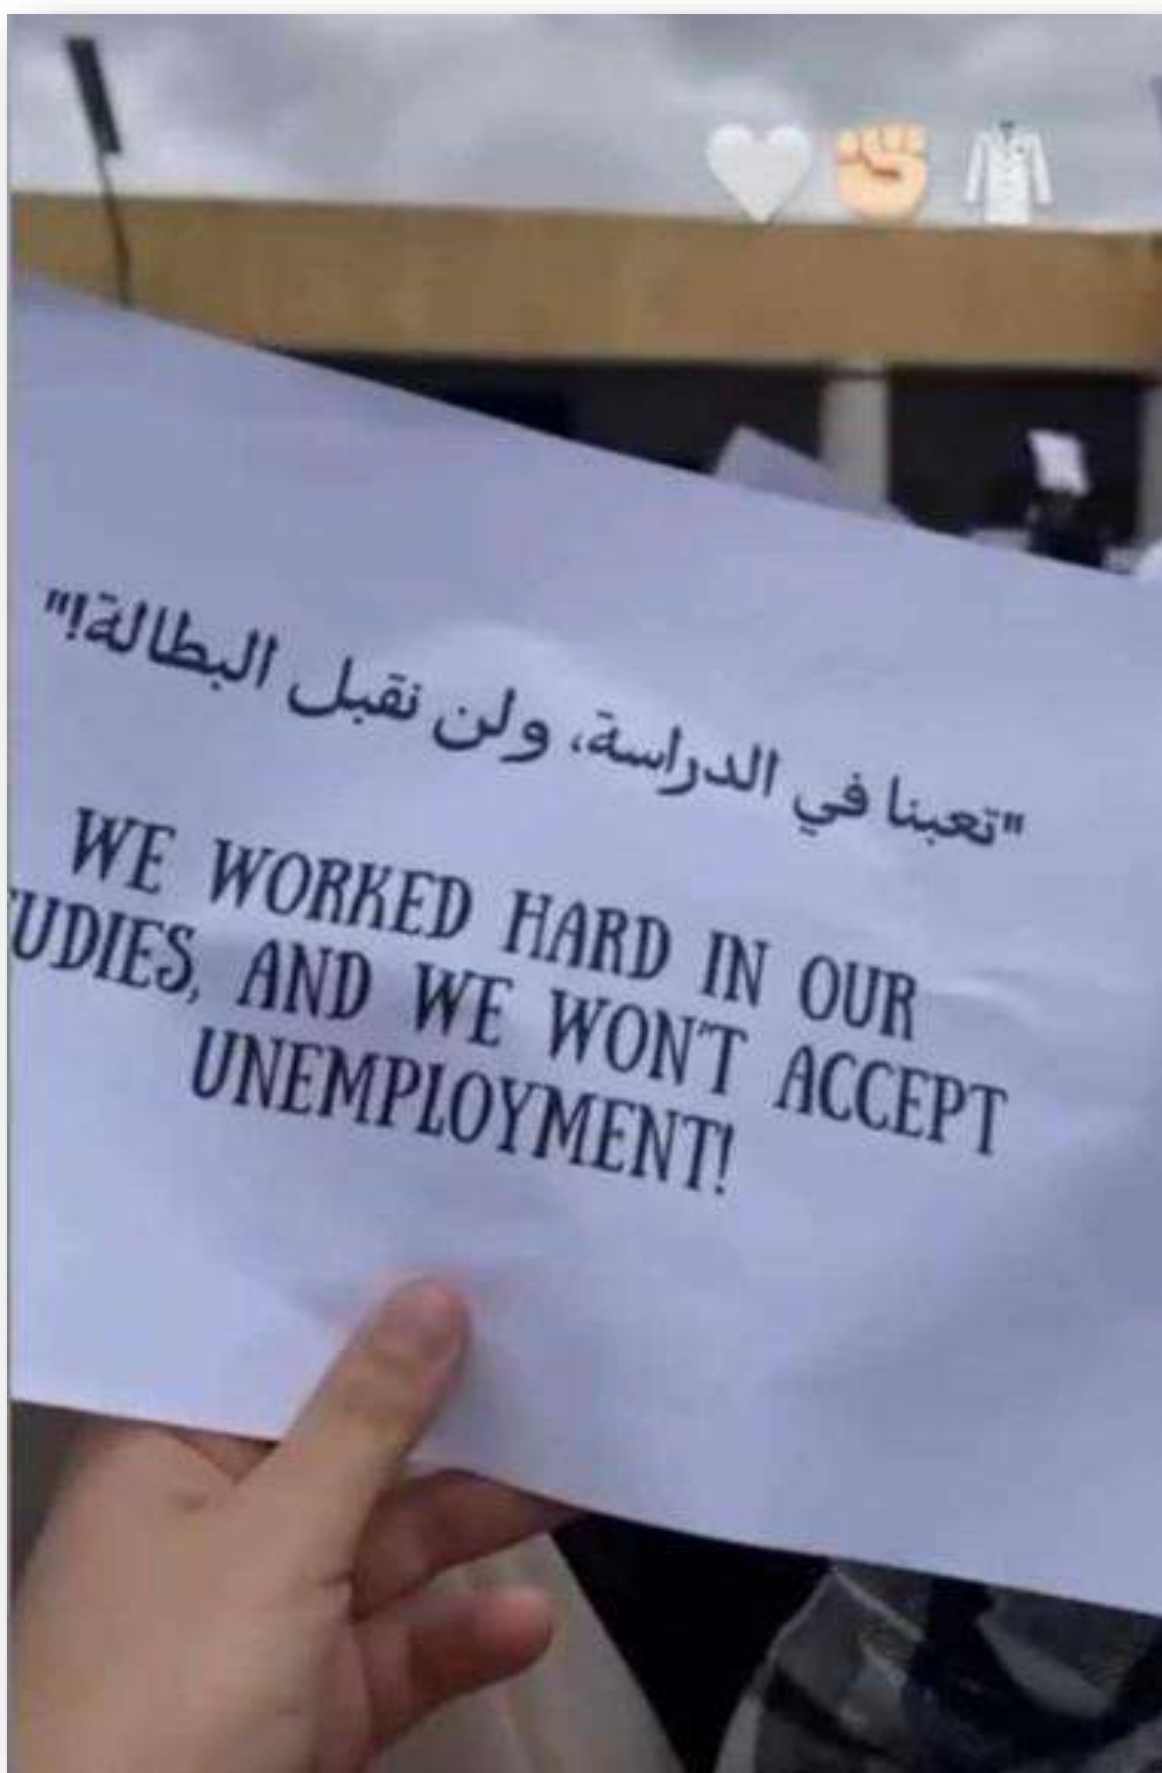 "تعبنا في الدراسة، ولن نقبل البطالة!"
WE WORKED HARD IN OUR
UDIES, AND WE WON'T ACCEPT
UNEMPLOYMENT!